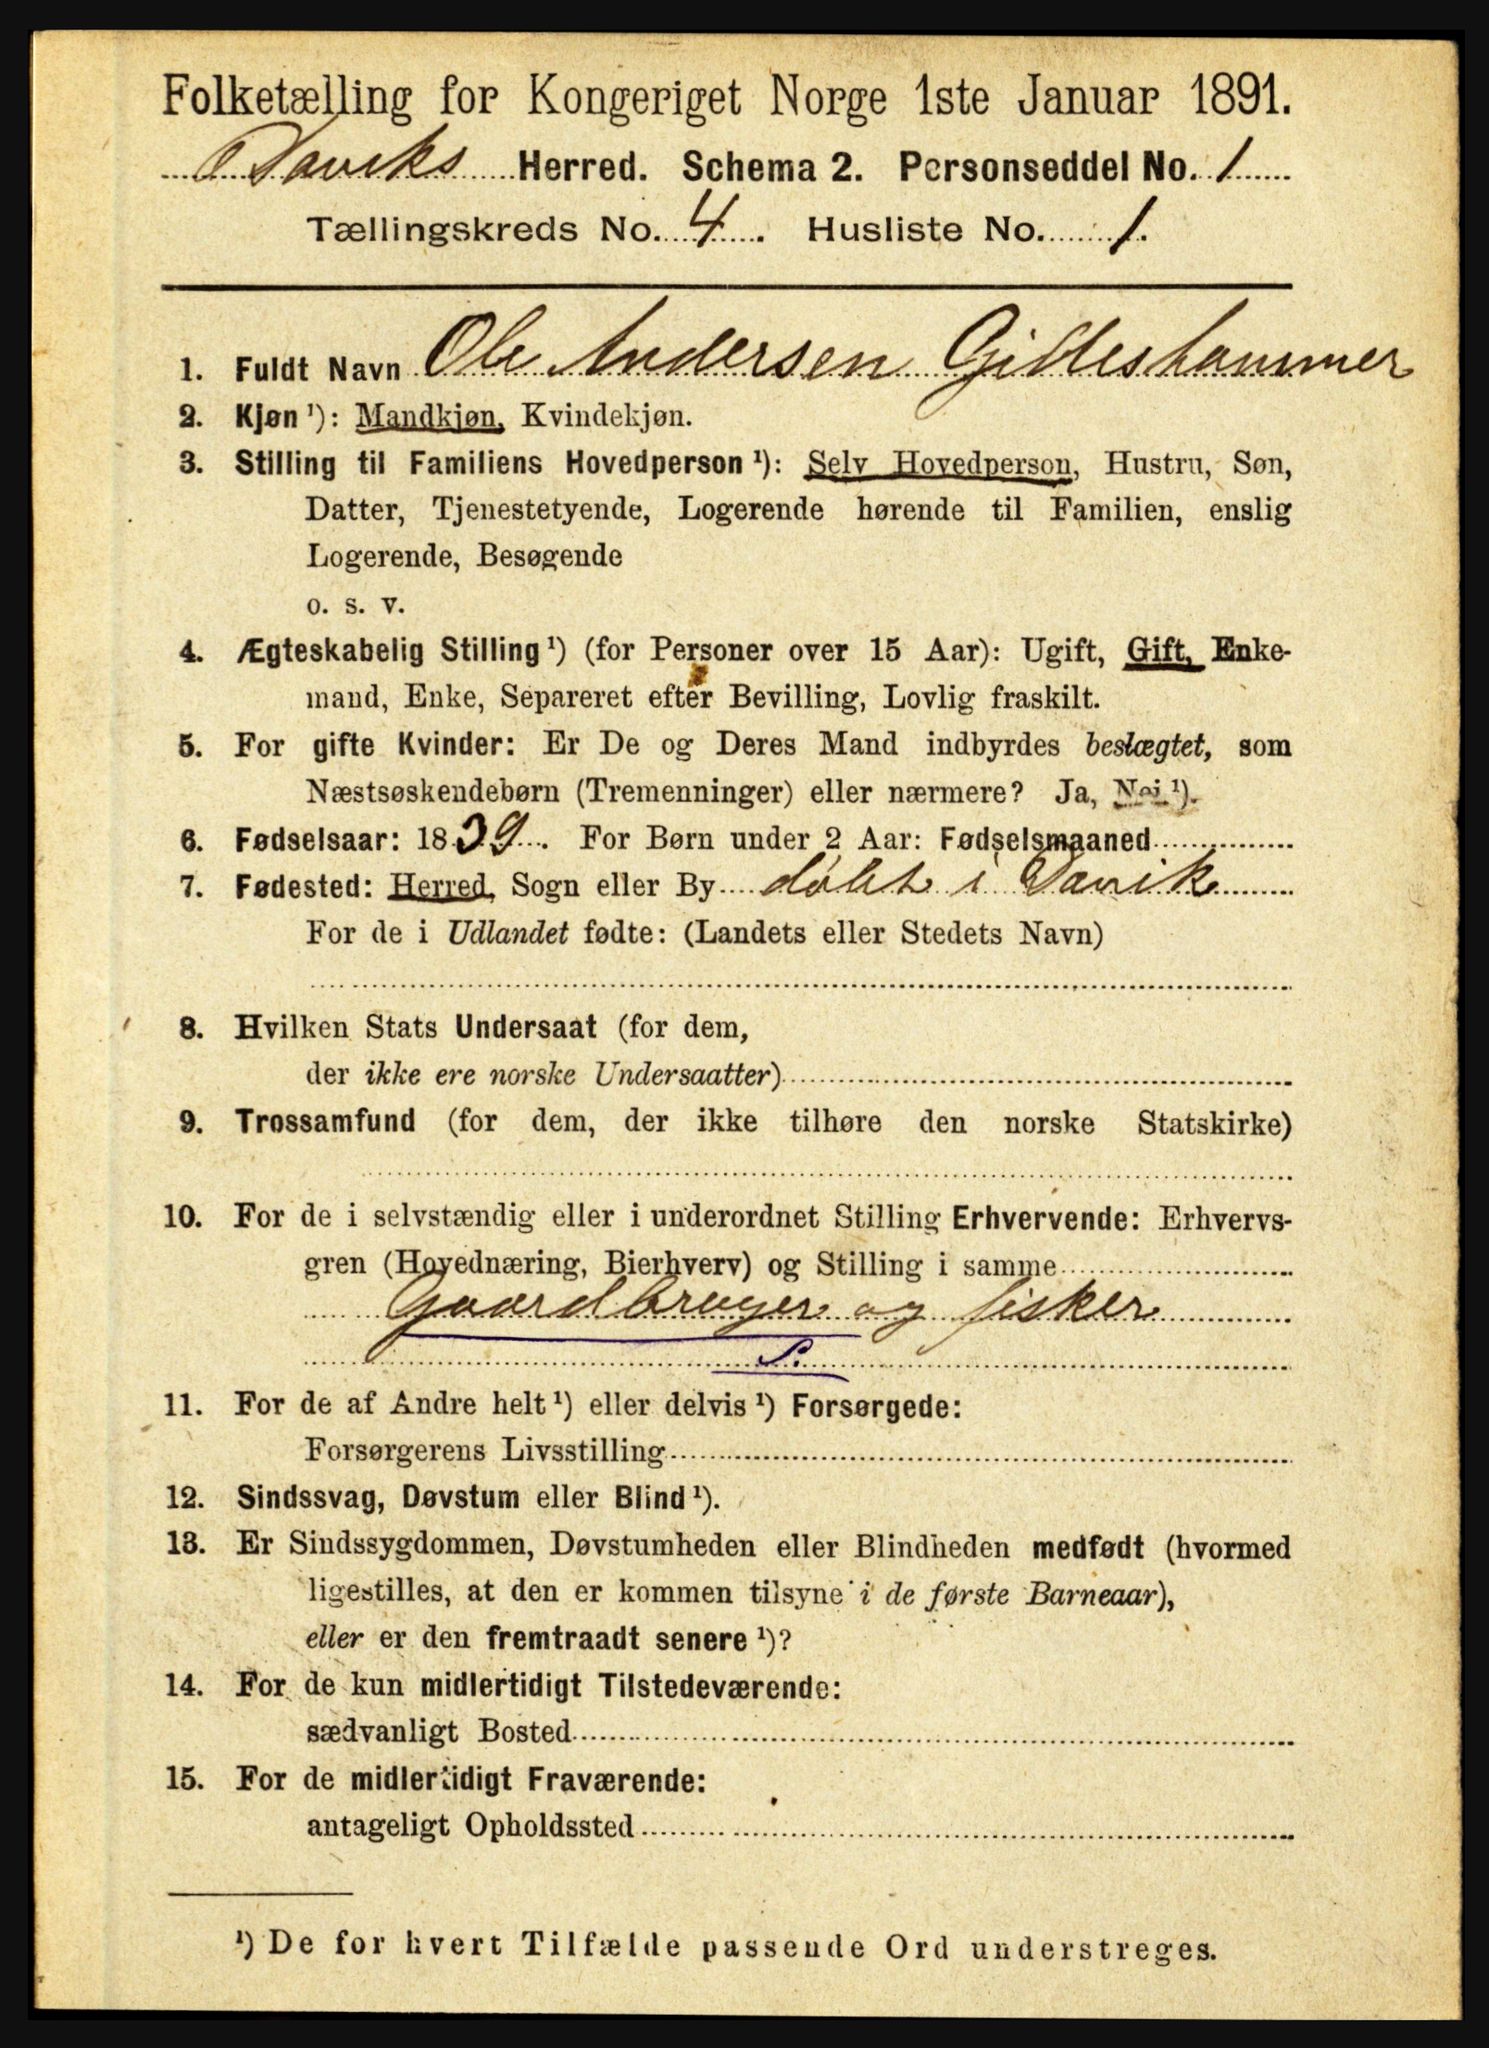 Folketælling for Kongeriget Norge 1ste Januar 1891.
Daviks Herred. Schema 2. Personseddel No. 1
Tællingskreds No. 4. Husliste No. 1.
1. Fuldt Navn Ole Andersen Gilleshammer
2. Kjøn ¹): Mandkjøn, Kvindekjøn.
3. Stilling til Familiens Hovedperson ¹): Selv Hovedperson, Hustru, Søn,
Datter, Tjenestetyende, Logerende hørende til Familien, enslig
Logerende, Besøgende
o. s. v.
4. Ægteskabelig Stilling ¹) (for Personer over 15 Aar): Ugift, Gift, Enke-
mand, Enke, Separeret efter Bevilling, Lovlig fraskilt.
5. For gifte Kvinder: Er De og Deres Mand indbyrdes beslægtet, som
Næstsøskendebørn (Tremenninger) eller nærmere? Ja, Nei ¹).
6. Fødselsaar: 1839. For Børn under 2 Aar: Fødselsmaaned
7. Fødested: Herred, Sogn eller By døbt i Davik
For de i Udlandet fødte: (Landets eller Stedets Navn)
8. Hvilken Stats Undersaat (for dem,
der ikke ere norske Undersaatter)
9. Trossamfund (for dem, der ikke tilhøre den norske Statskirke)
10. For de i selvstændig eller i underordnet Stilling Erhvervende: Erhvervs-
gren (Hovednæring, Bierhverv) og Stilling i samme
Gaardbruger og fisker
S.
11. For de af Andre helt ¹) eller delvis ¹) Forsørgede:
Forsørgerens Livsstilling
12. Sindssvag, Døvstum eller Blind ¹).
13. Er Sindssygdommen, Døvstumheden eller Blindheden medfødt (hvormed
ligestilles, at den er kommen tilsyne i de første Barneaar),
eller er den fremtraadt senere ¹)?
14. For de kun midlertidigt Tilstedeværende:
sædvanligt Bosted
15. For de midlertidigt Fraværende:
antageligt Opholdssted
¹) De for hvert Tilfælde passende Ord understreges.